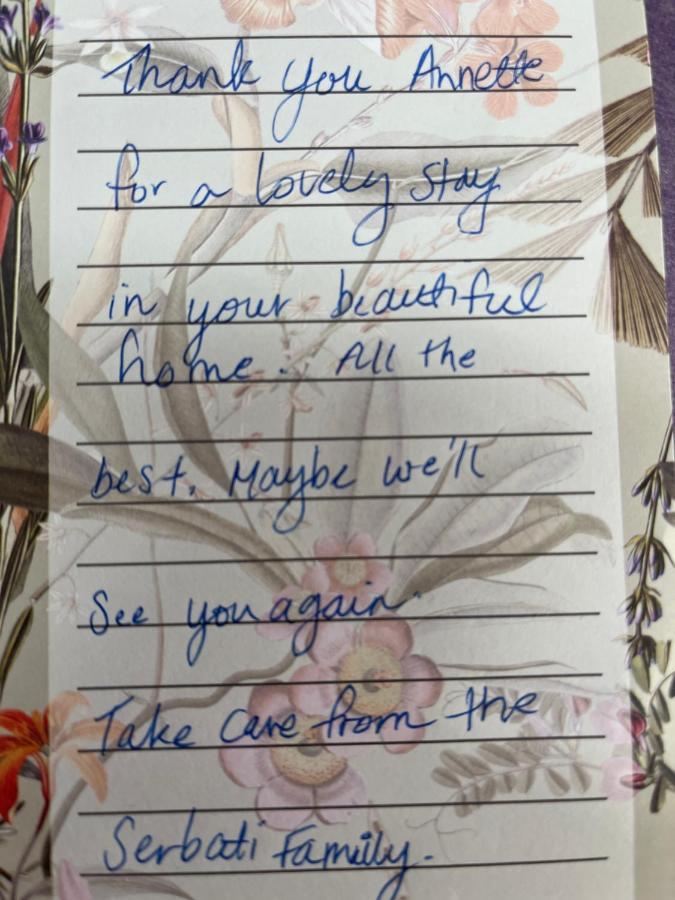 Thank you Annette
for a lovely stay
in your beautiful
home. All the
best. Maybe we'll
see you again.
Take care from the
Serbati Family.